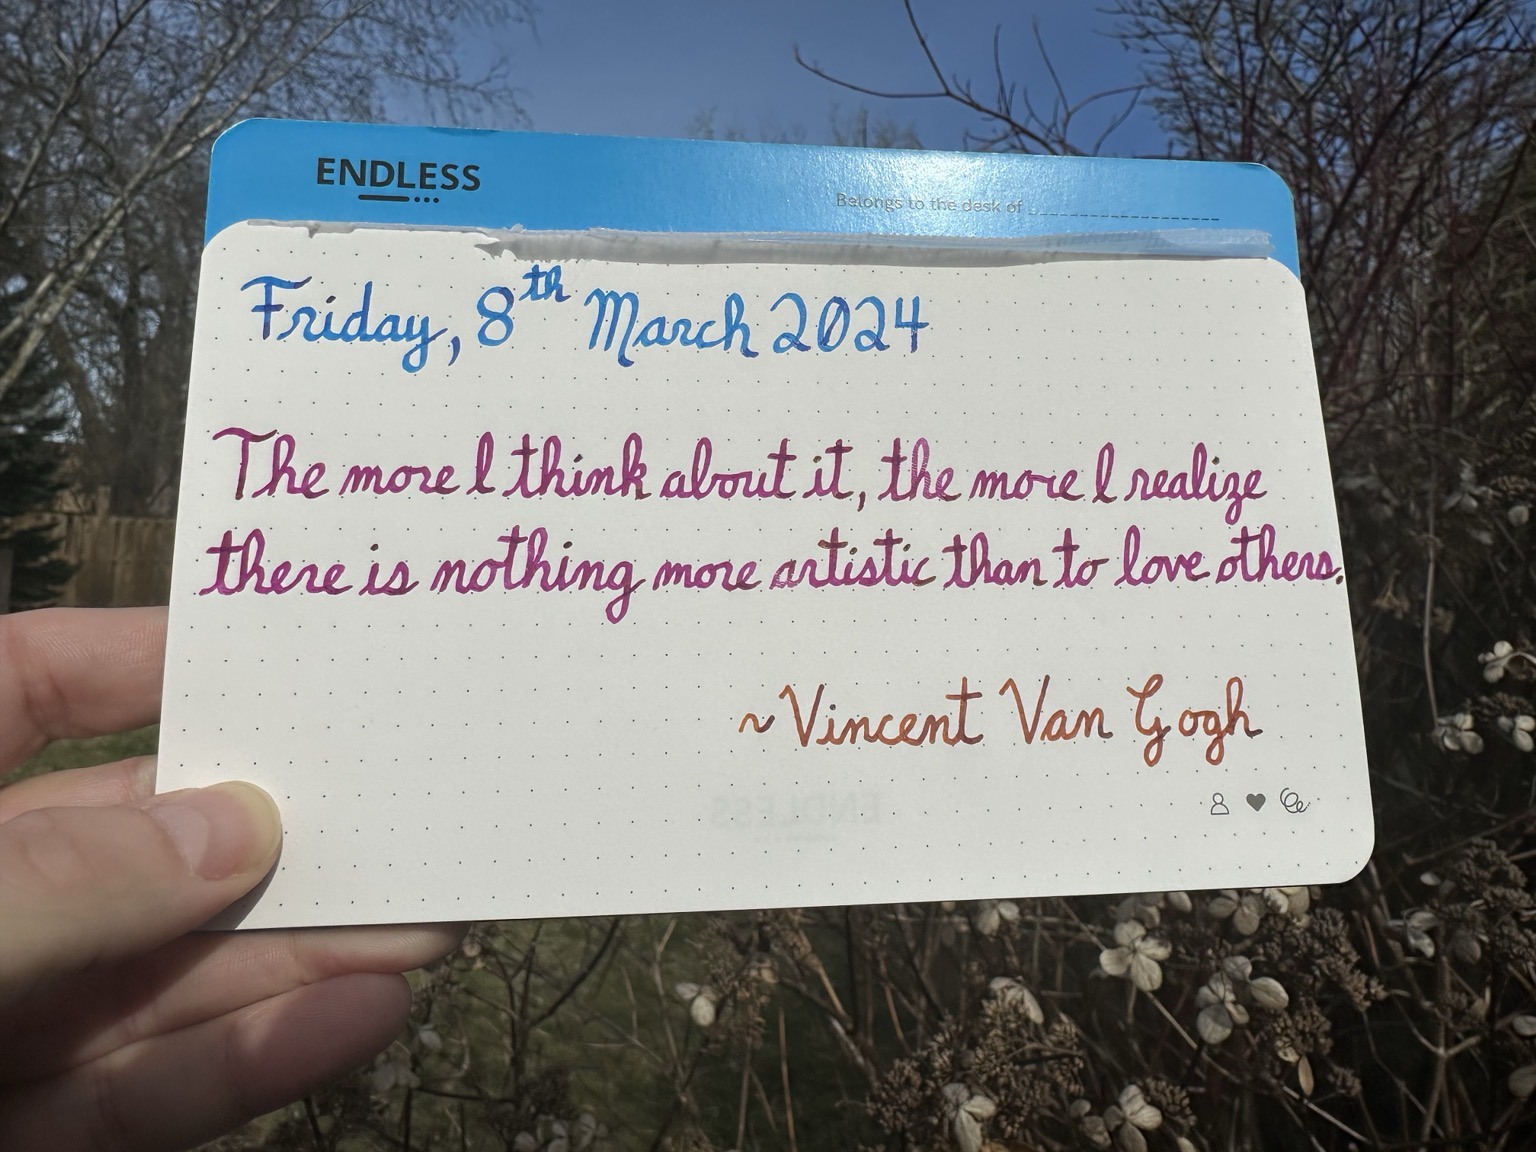 ENDLESS
Belongs to the desk of
Friday, 8th March 2024
The more I think about it, the more I realize
there is nothing more artistic than to love others.
~Vincent Van Gogh
ENDLESS